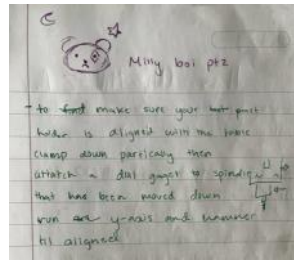 Milly boi pt2
- to make sure your part
holder is aligned with the
clamp down partically then
attatch a dial gaget to spindle
that has been moved down
run y-axis and
til aligned